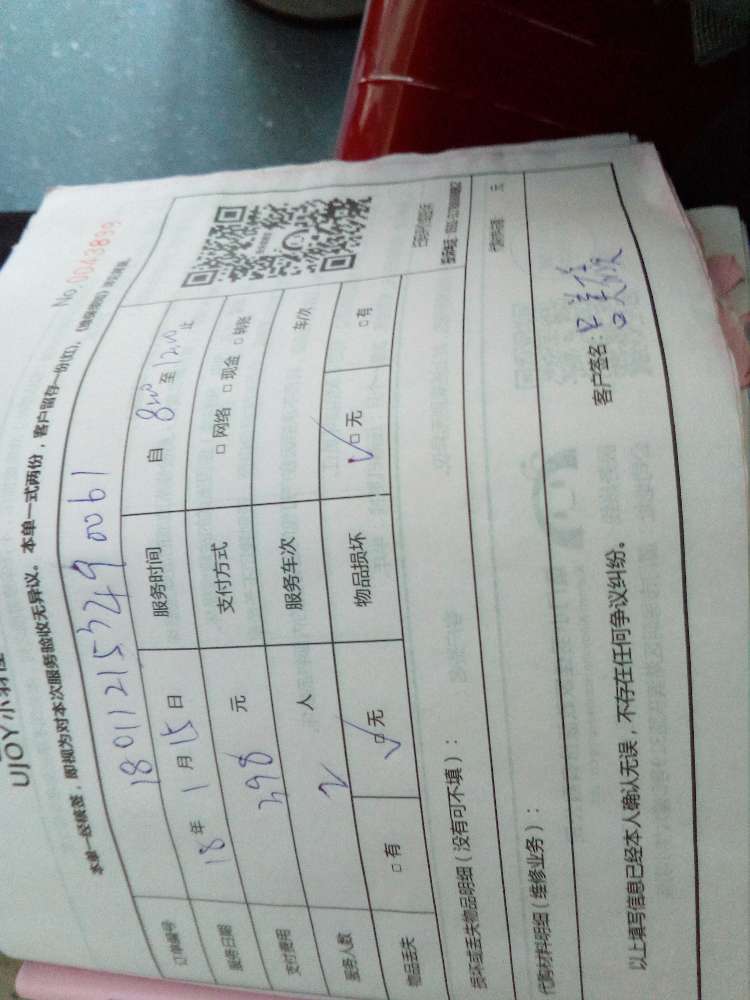 UJOY
No. 0043899
本单一经接签，即视为对本次服务验收无异议。本单一式两份，客户留存一份(红)，
订单编号 180112153490061
服务日期 18年1月15日 服务时间 自 8:00 至 12:00 止
支付费用 298 元 支付方式 □ 网络 □ 现金 □ 转账
服务人数 2 人 服务车次 车/次
物品丢失 □ 有 □ 无 物品损坏 □ 无 □ 有
损坏或丢失物品明细（没有可不填）：
代购材料明细（维修业务）： 元
以上填写信息已经本人确认无误，不存在任何争议纠纷。 客户签名：